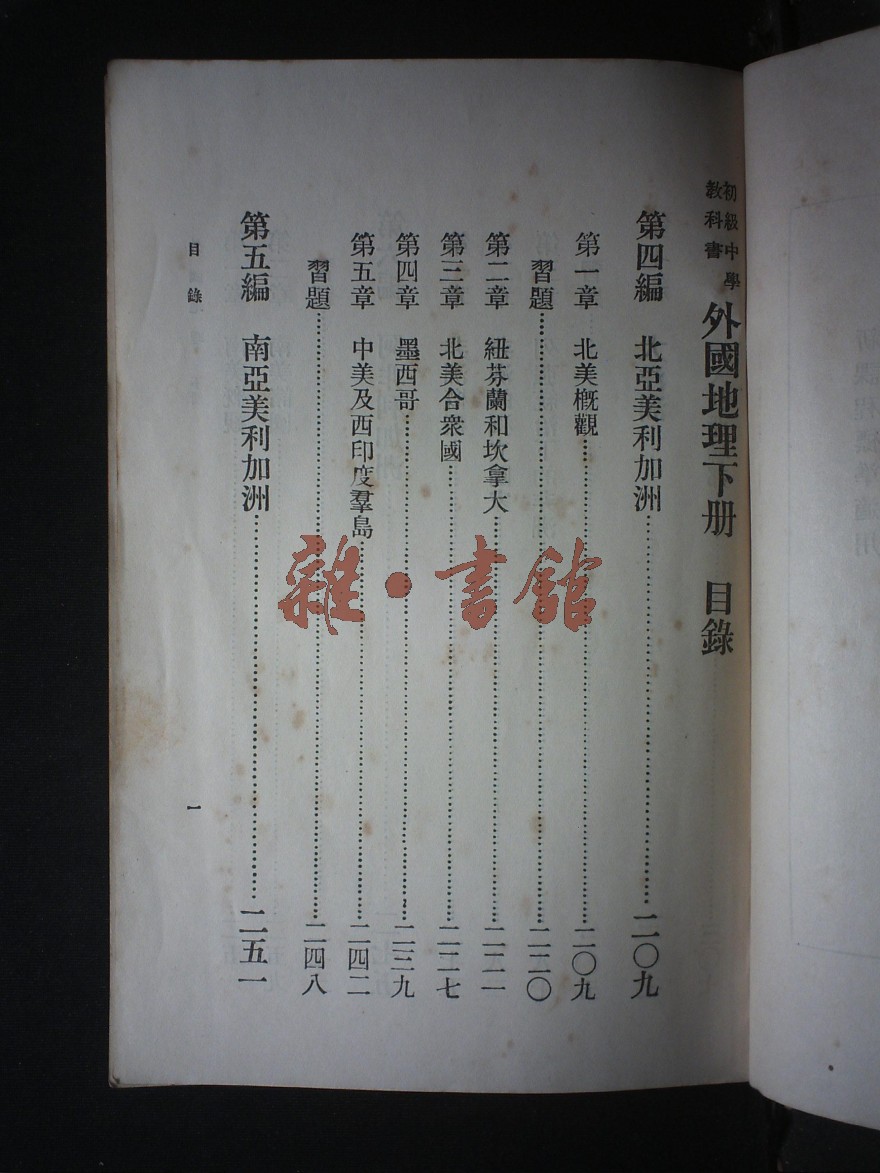 初級中學
教科書
外國地理下册 目錄
第四編 北亞美利加洲……二〇九
第一章 北美概觀……二〇九
習題……二二〇
第二章 紐芬蘭和坎拿大……二二一
第三章 北美合衆國……二二七
第四章 墨西哥……二三九
第五章 中美及西印度羣島……二四二
習題……二四八
第五編 南亞美利加洲……二五一
目錄
一
雜·書館